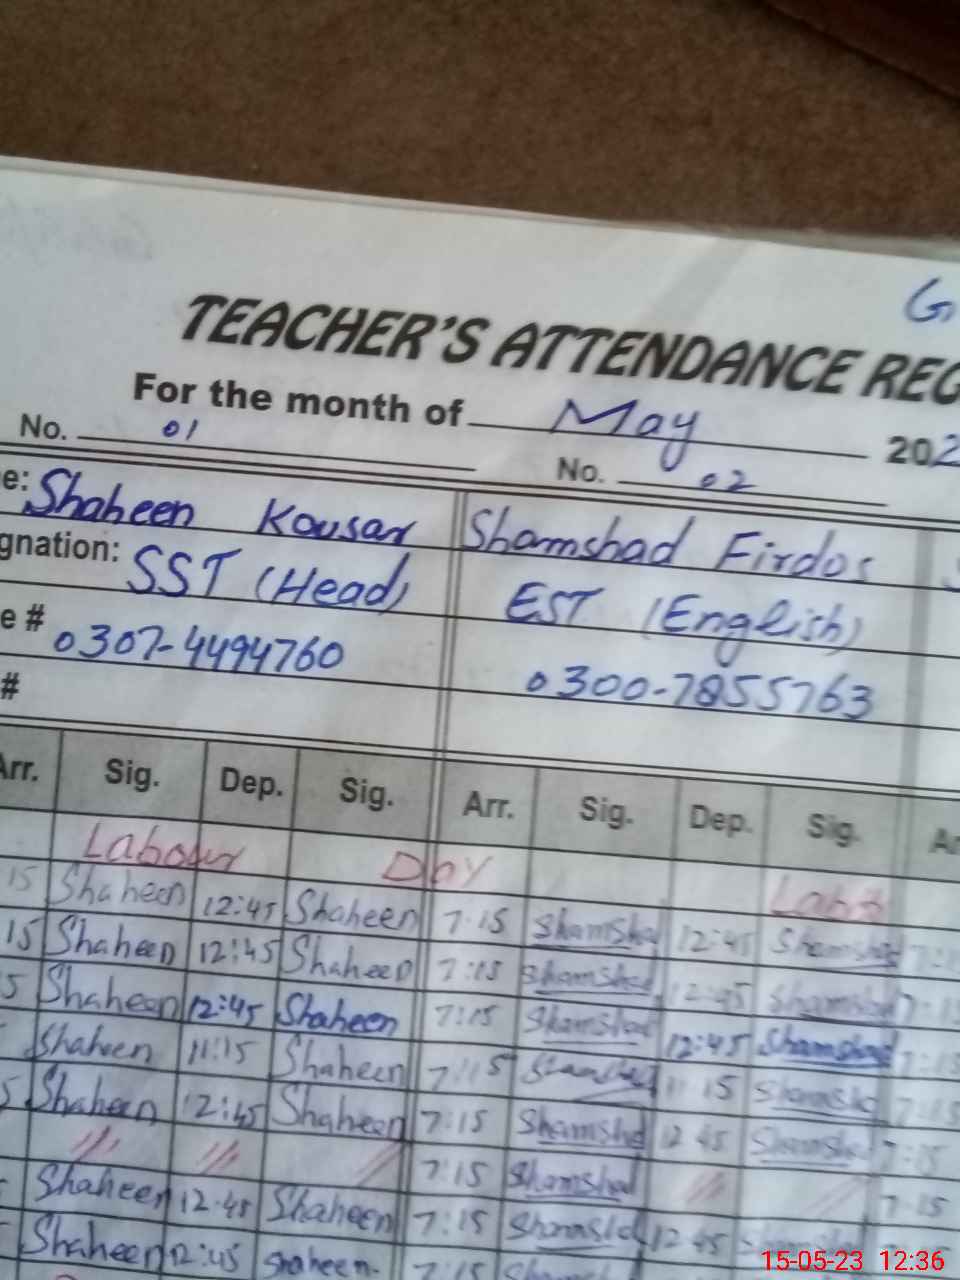 G
TEACHER'S ATTENDANCE REG
For the month of May 202
No. 01 No. 02
e: Shaheen Kousar Shamshad Firdos
gnation: SST (Head) EST (English)
e # 0307-4494760 0300-7855763
#
Arr. Sig. Dep. Sig. Arr. Sig. Dep. Sig. Ar
Labour Day
15 Shaheen 12:45 Shaheen 7:15 Shamshad 12:45 Shamshad
15 Shaheen 12:45 Shaheen 7:15 Shamshad 12:45 Shamshad
5 Shaheen 12:45 Shaheen 7:15 Shamshad 12:45 Shamshad
Shaheen 11:15 Shaheen 7:15 Shamshad 11 15 Shamshad
5 Shaheen 12:45 Shaheen 7:15 Shamshad 12 45 Shamshad 7:15
7:15 Shamshad 7:15
Shaheen 12:45 Shaheen 7:15 Shamshad 12 45 Shamshad
Shaheen 12:45 Shaheen 7:15
15-05-23 12:36